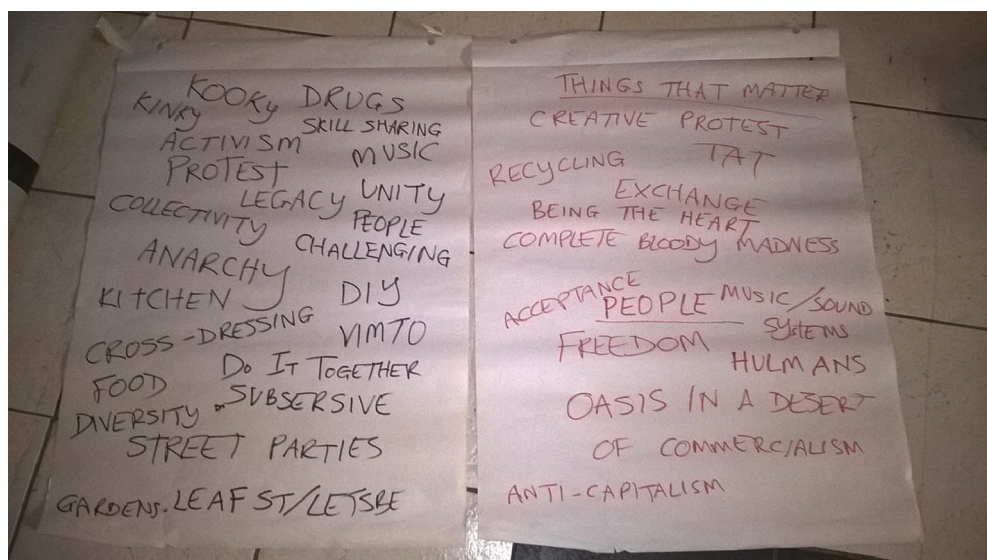 KOOKY DRUGS
KINKY
SKILL SHARING
ACTIVISM
MUSIC
PROTEST
LEGACY UNITY
COLLECTIVITY
PEOPLE
CHALLENGING
ANARCHY
KITCHEN
DIY
CROSS-DRESSING
VIMTO
DO IT TOGETHER
FOOD
SUBSERSIVE
DIVERSITY
STREET PARTIES
GARDENS. LEAF ST/LETSBE
THINGS THAT MATTER
CREATIVE PROTEST
TAT
RECYCLING
EXCHANGE
BEING THE HEART
COMPLETE BLOODY MADNESS
ACCEPTANCE
PEOPLE
MUSIC/SOUND
SYSTEMS
FREEDOM
HULMANS
OASIS IN A DESERT
OF COMMERCIALISM
ANTI-CAPITALISM